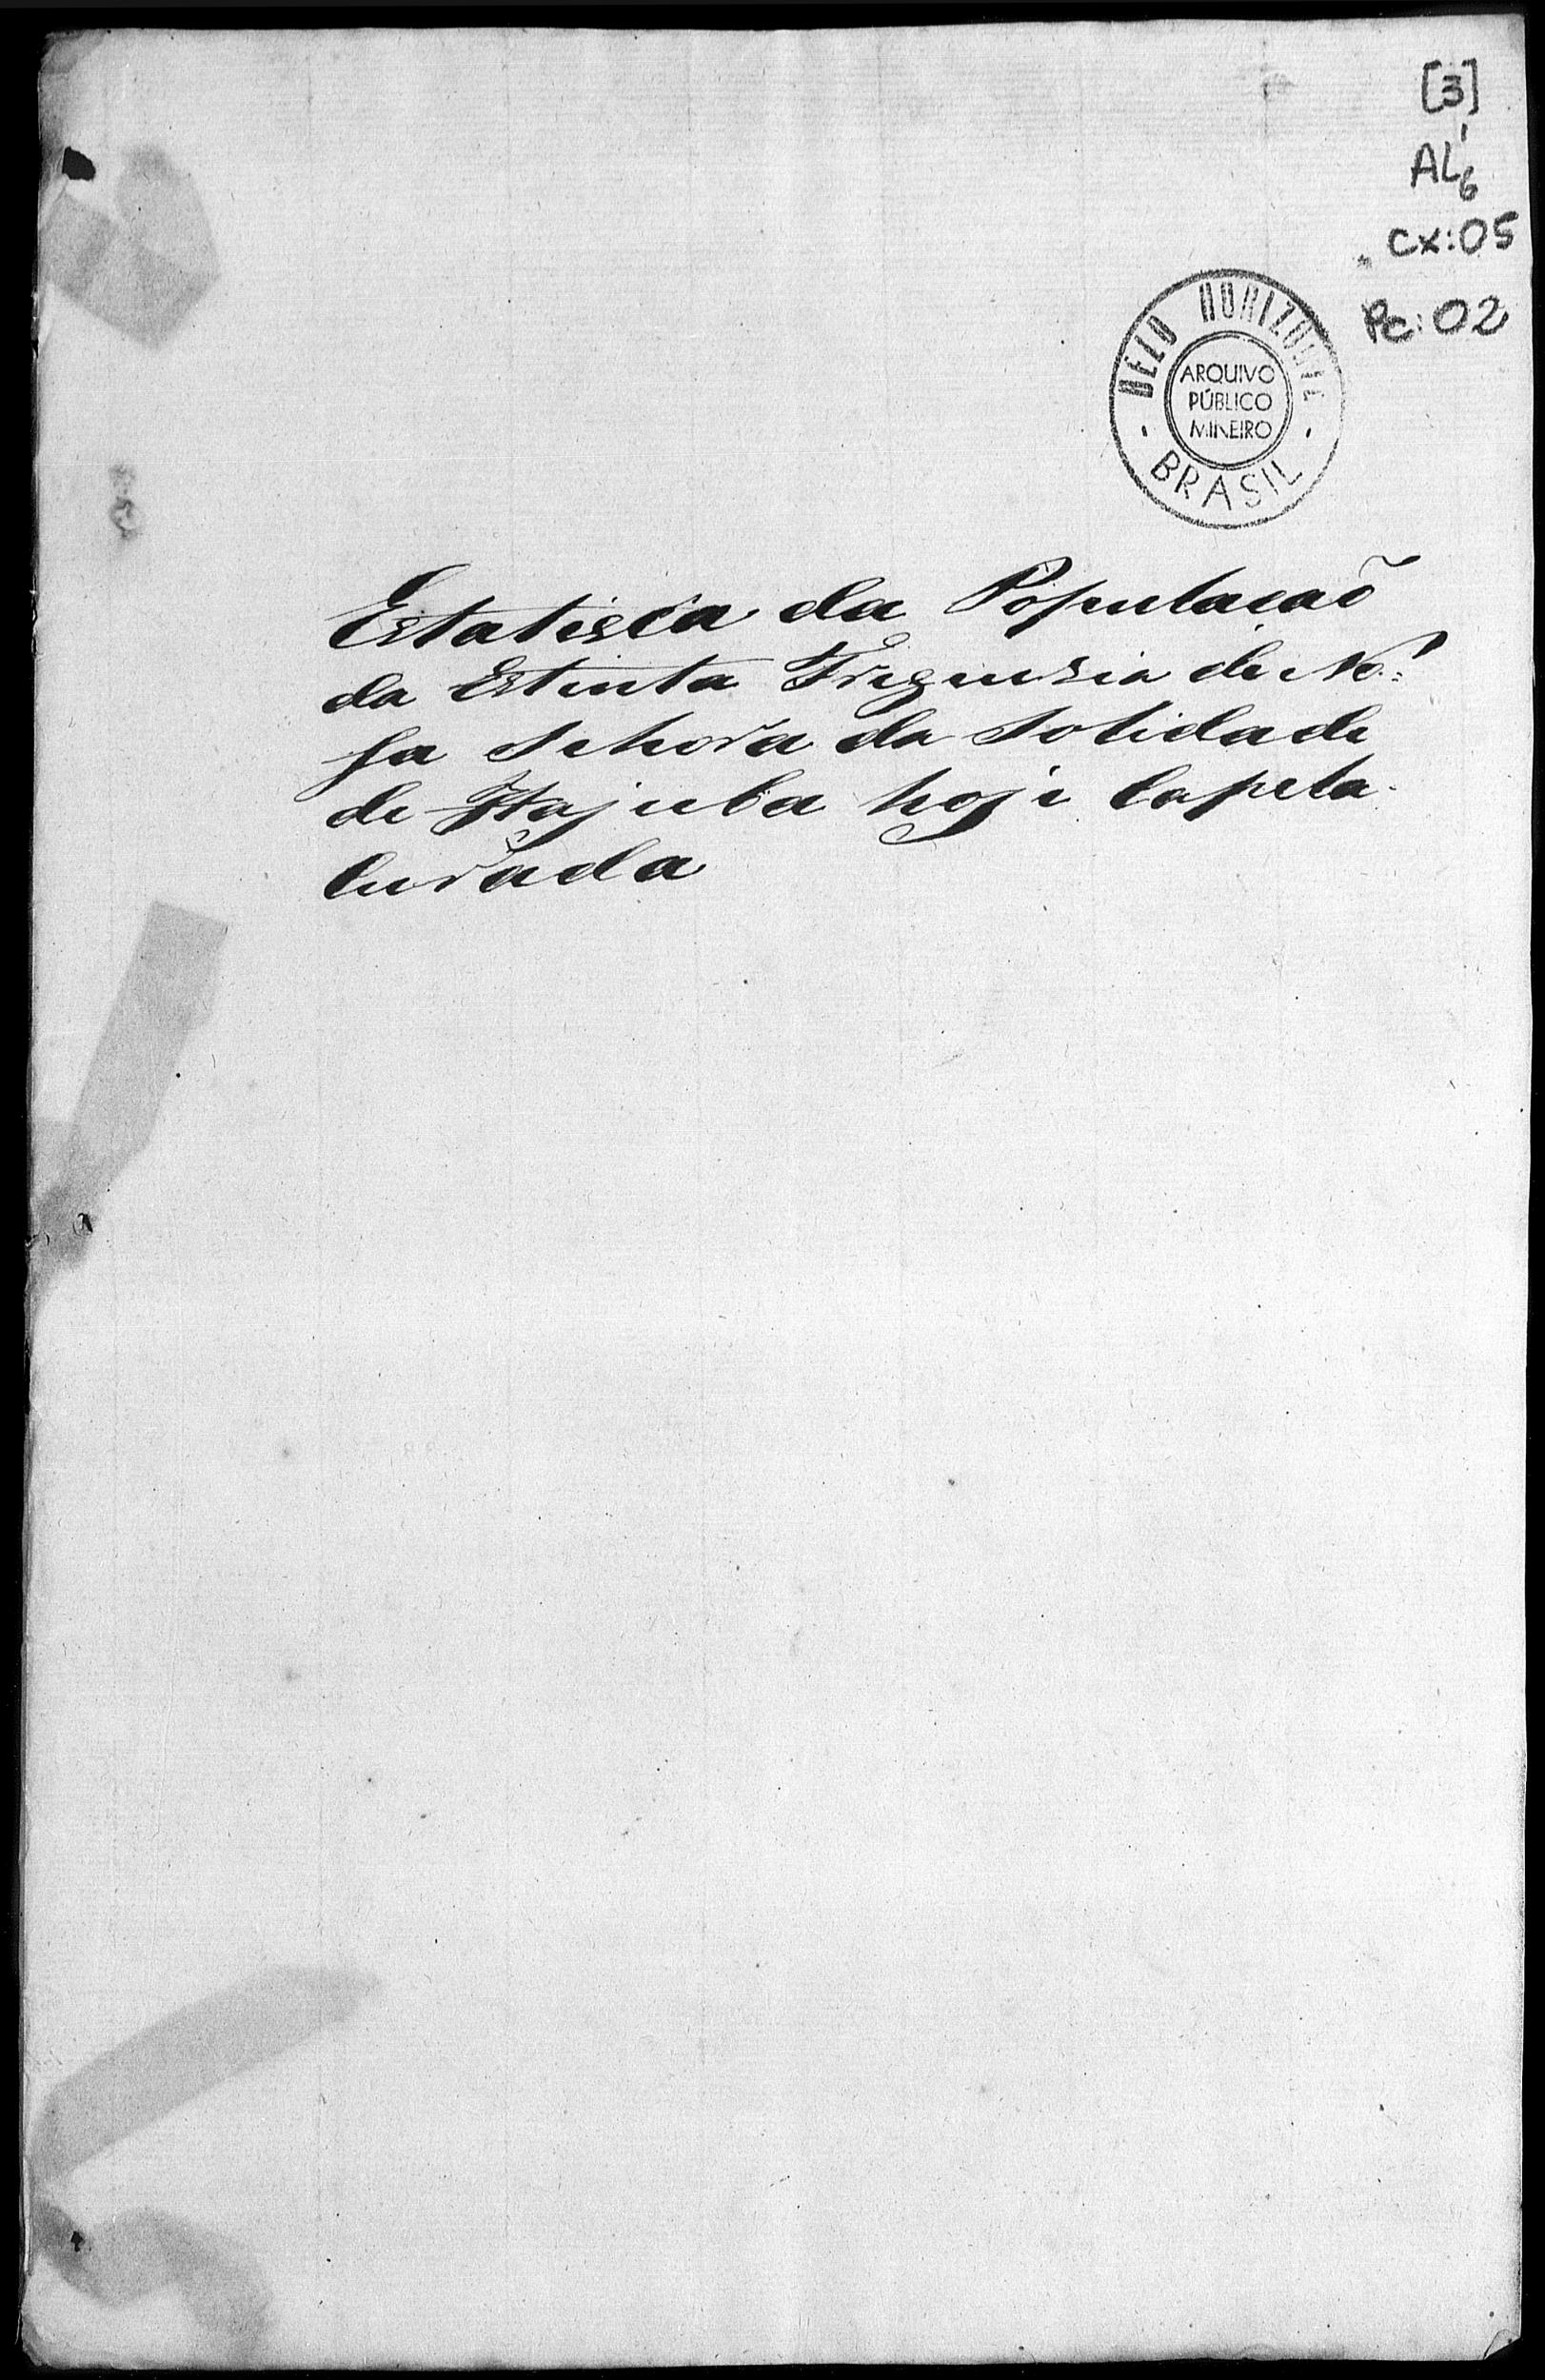 [3]
AL6
cx:05
Pc: 02
BELO HORIZONTE
ARQUIVO
PÚBLICO
MINEIRO
BRASIL
Estatisca da Populacaõ
da Estinta Freguesia de No=
ssa Sehora da Solidade
de Itajuba hoje Capela
Curada